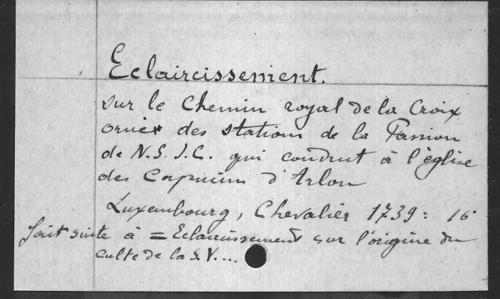 Eclaircissement.
sur le Chemin royal de la Croix
orné des stations de la Passion
de N.S.J.C. qui conduit à l'église
des Capucins d'Arlon
Luxembourg, Chevalier 1739: 16°
fait suite à = Eclaircissement sur l'origine du
culte de la S.V....